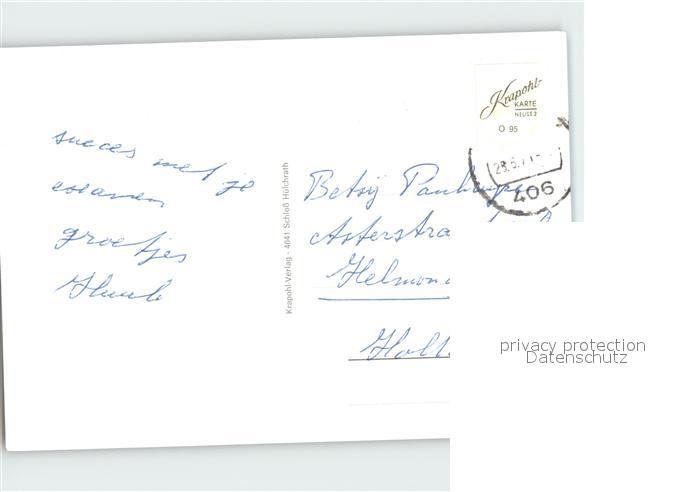 succes met je
examen
groetjes
Huub
Krapohl-Verlag - 4041 Schloß Hülchrath
Krapohl-
KARTE
NEUSS 2
O 95
406
Betsy
Helmon
Holl
privacy protection
Datenschutz